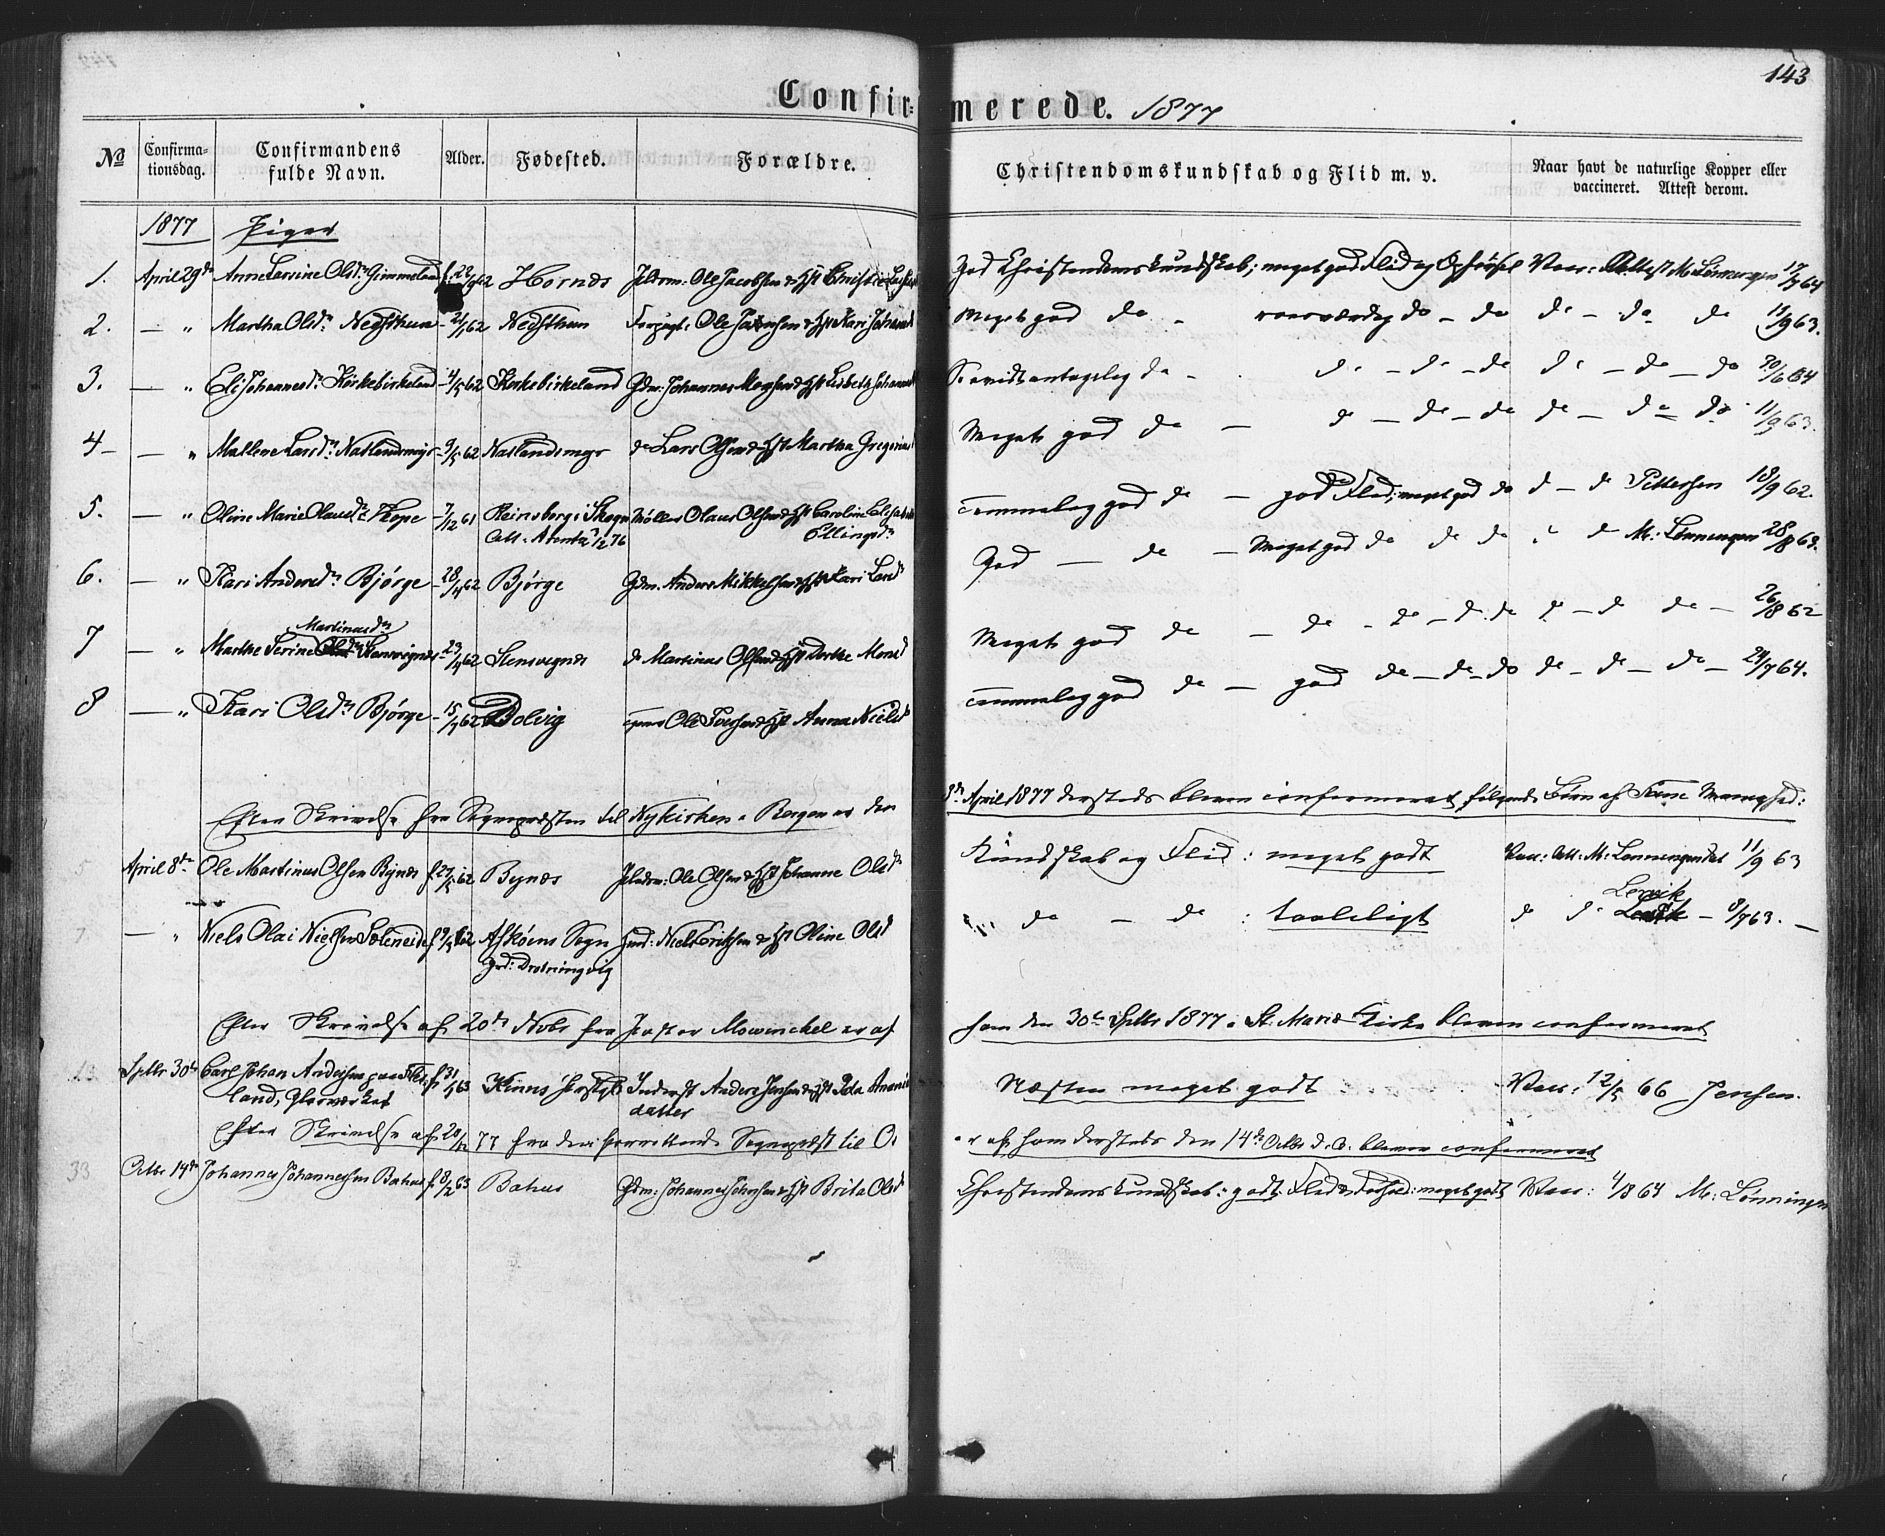 143
Confir=merede. 1877
No Confirma-tionsdag. Confirmandens fulde Navn. Alder. Fødested. Forældre. Christendomskundskab og Flid m. v. Naar havt de naturlige Kopper eller vaccineret. Attest derom.
1877 Piger
1. April 29de Anne Larsine Olsdr Gimmeland f. 22/9 62 Hornes Jeldsm: Ole Jacobsen & Hst God Christendomskundskab; meget god Flid og Opførsel Vacc: Attest M Lønningen 17/7 64
2. — " Martha Olsdr Nedsthun - 21/1 62 Nedsthun Ole & Hst Kari Meget god do - roesværdig do - do do - do do 11/9 63.
3. — " Eli Johannesdr Kirkebirkeland - 4/5 62 Kirkebirkeland Gdm: Johannes Mogsen & Hst Lisbeth do - do - do - do do - do - do 30/6 64
4 - — " Mallene Larsdr Natlandsmyr - 9/5 62 Natlandsmyr do Lars Olsen & Hst Martha Meget god do - do - do - do do - do do 11/9 63.
5. — " Oline Marie Olausdr Kope - 7/12 61 Reinsborg i Skogn Møller Olaus Olsen & Hst Caroline
Att. 1/2 76 Ellingsdr god do — god Flid; meget god do do - do Pettersen 18/9 62.
6. — " Kari Andersdr Bjørge - 28/4 62 Bjørge Gdm. Anders Mikkelsen & Hst Kari Larsdr God — do — Meget god do do do do M: Lønningen 28/8 63.
Martinusdr
7 — " Marthe Serine Stensvegnes - 23/9 62 Stensvegnes do Martinus Olsen & Hst Dorthe Monsd Meget god do — do - do - do do do - do do — 26/8 62
8 — " Kari Olsdr Bjørge - 15/7 62 Bolvig Ole Iversen & Hst Anna Nielsdr god do — god do — do - do do - do - do — 24/7 64.
Efter Skrivelse fra Sognepræsten til Nykirken i Bergen er den 8de April 1877 dersteds bleven confirmeret følgende Børn af Fane Menighed:
5 April 8de Ole Martinus Olsen Bynes f 27/5 62 Bynes Jeldsm: Ole Olsen & Hst Johanne Olsd Kundskab og Flid: meget godt Vacc: Att: M: Lønningen 11/9 63
7 — " Niels Olai Nielsen Sæleneide f 9/5 62 Askøens Sogn Niels Eriksen & Hst Oline Olsd " do — do : taaleligt do do Lervik — 8/7 63. —
Grd: Drotningvig
Efter Skrivelse af 20de Novbr fra Pastor Mowinckel er af ham den 30te Septbr 1877 i St. Mariæ Kirke bleven confirmeret
13 Septbr 30te Carl Johan Andersen f 31/1 63 Kinns Præstgj Inderst Anders Jensen & Hst Ida Næsten meget godt Vacc: 12/5 66 Jensen.
land, Glasværket datter
Efter Skrivelse af 20/12 77 fra den Sognepræst til er af ham dersteds den 14de Octbr d. A. bleven confirmeret
33 Octbr 14de Johannes Johannessen Bahus f. 8/2 63 Bahus Gdm: Johannes Johnsen & Hst Brita Olsd Christendomskundskab: godt. Flid & Forhold: meget godt Vacc: 4/8 64 M: Lønningen